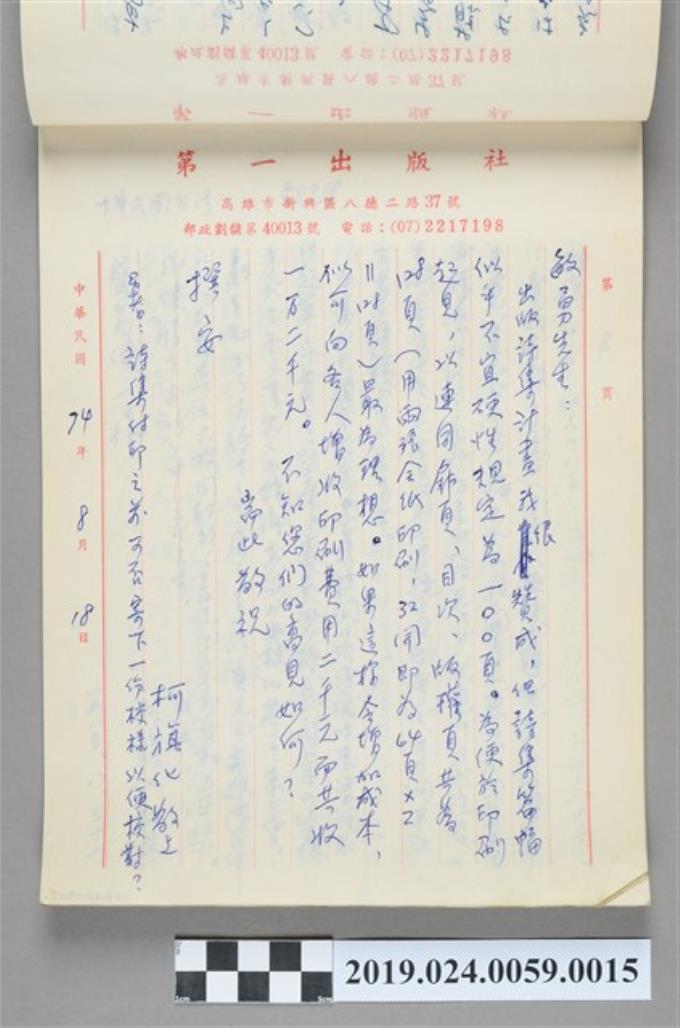 第一出版社
高雄市新興區八德二路37號
郵政劃儲第40013號 電話：(07)2217198
第 頁
敏勇先生：
出版詩集計畫我很贊成，但詩集篇幅
似乎不宜硬性規定為一００頁。為便於印刷
起見，以連同扉頁、目次、版權頁共為
128頁（用兩張全紙印刷，32開即為64頁×2
＝128頁）最為理想。如果這樣會增加成本，
似可向各人增收印刷費用二千元而共收
一万二千元。不知您們的高見如何？
耑此敬祝
撰安
柯旗化敬上
又者：詩集付印之前可否寄下一份校樣以便校對？
中華民國 74年 8月 18日
2019.024.0059.0015